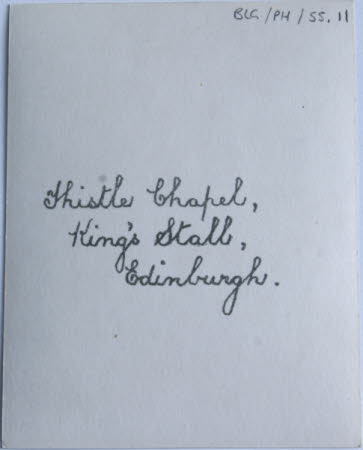 BLG/PH/SS.11
Thistle Chapel,
King's Stall,
Edinburgh.